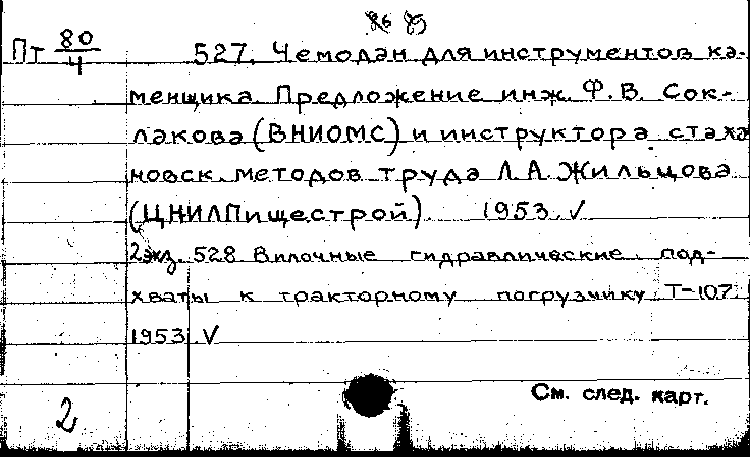 86 85
Пт 80/4 527. Чемодан для инструментов ка-
менщика. Предложение инж. Ф. В. Сок-
лакова (ВНИОМС) и инструктора стаха
новск. методов труда Л. А. Жильцова
(ЦНИЛПищестрой). 1953. V
2 экз. 528. Вилочные гидравлические под-
хваты к тракторному погрузчику Т-107.
1953. V
См. след. карт.
2